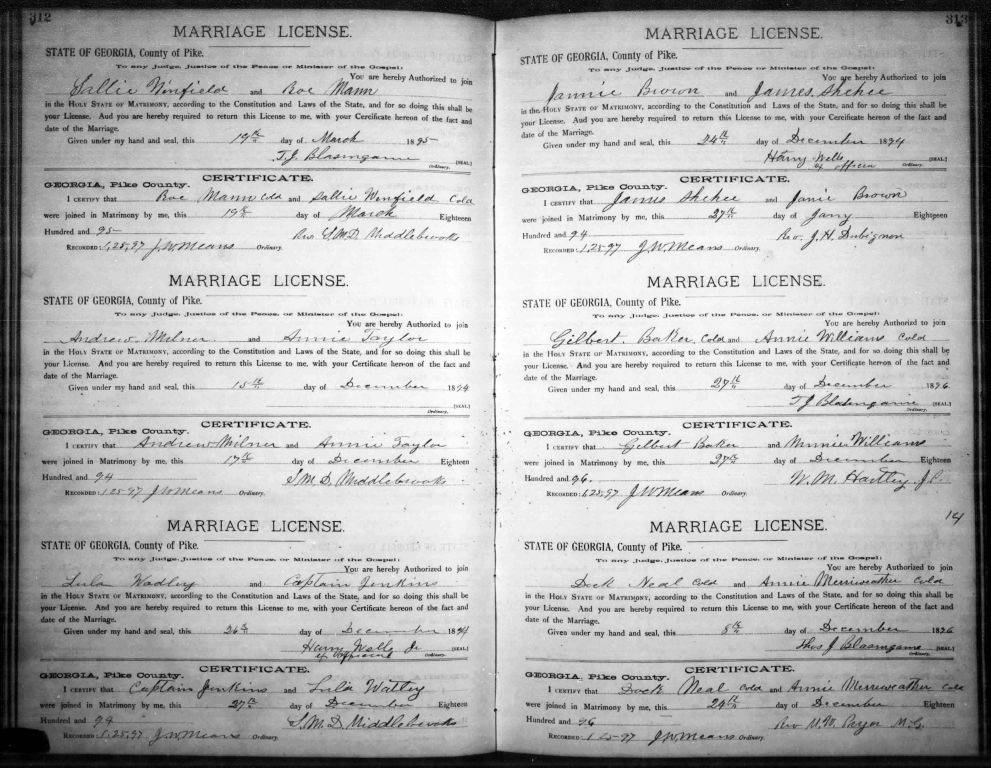 312
MARRIAGE LICENSE.
STATE OF GEORGIA, County of Pike.
To any Judge, Justice of the Peace or Minister of the Gospel:
You are hereby Authorized to join
Sallie Winfield and Roe Mann
in the HOLY STATE OF MATRIMONY, according to the Constitution and Laws of the State, and for so doing this shall be
your License. And you are hereby required to return this License to me, with your Certificate hereon of the fact and
date of the Marriage.
Given under my hand and seal, this 19th day of March 1895
T.J. Blasingame [SEAL]
Ordinary.
CERTIFICATE.
GEORGIA, Pike County.
I CERTIFY that Roe Mann Cold and Sallie Winfield Cold
were joined in Matrimony by me, this 19th day of March Eighteen
Hundred and 95 Rev S.M.D. Middlebrooks
RECORDED: 1,25,97 J.W. Means Ordinary.
MARRIAGE LICENSE.
STATE OF GEORGIA, County of Pike.
To any Judge, Justice of the Peace, or Minister of the Gospel:
You are hereby Authorized to join
Andrew Milner and Annie Taylor
in the HOLY STATE OF MATRIMONY, according to the Constitution and Laws of the State, and for so doing this shall be
your License. And you are hereby required to return this License to me, with your Certificate hereon of the fact and
date of the Marriage.
Given under my hand and seal, this 15th day of December 1894
[SEAL]
Ordinary.
CERTIFICATE.
GEORGIA, Pike County.
I CERTIFY that Andrew Milner and Annie Taylor
were joined in Matrimony by me, this 17th day of December Eighteen
Hundred and 94 S.M.D. Middlebrooks
RECORDED: 1,25,97 J.W. Means Ordinary.
MARRIAGE LICENSE.
STATE OF GEORGIA, County of Pike.
To any Judge, Justice of the Peace or Minister of the Gospel:
You are hereby Authorized to join
Lula Wadley and Captain Jenkins
in the HOLY STATE OF MATRIMONY, according to the Constitution and Laws of the State, and for so doing this shall be
your License. And you are hereby required to return this License to me, with your Certificate hereon of the fact and
date of the Marriage.
Given under my hand and seal, this 26th day of December 1894
Harry Wells Jr [SEAL]
Ordinary.
CERTIFICATE.
GEORGIA, Pike County.
I CERTIFY that Captain Jenkins and Lula Watley
were joined in Matrimony by me, this 27th day of December Eighteen
Hundred and 94 S.M.D. Middlebrooks
RECORDED: 1,25,97 J.W. Means Ordinary.
313
MARRIAGE LICENSE.
STATE OF GEORGIA, County of Pike.
To any Judge, Justice of the Peace or Minister of the Gospel:
You are hereby Authorized to join
Jannie Brown and James Shehee
in the HOLY STATE OF MATRIMONY, according to the Constitution and Laws of the State, and for so doing this shall be
your License. And you are hereby required to return this License to me, with your Certificate hereon of the fact and
date of the Marriage.
Given under my hand and seal, this 24th day of December 1894
Harry Wells [SEAL]
ex officio Ordinary.
CERTIFICATE.
GEORGIA, Pike County.
I CERTIFY that James Shehee and Janie Brown
were joined in Matrimony by me, this 27th day of Jany Eighteen
Hundred and 94 Rev. J.H. Dubignon
RECORDED: 1,25,97 J.W. Means Ordinary.
MARRIAGE LICENSE.
STATE OF GEORGIA, County of Pike.
To any Judge, Justice of the Peace, or Minister of the Gospel:
You are hereby Authorized to join
Gilbert Baker Cold and Annie Williams Cold
in the HOLY STATE OF MATRIMONY, according to the Constitution and Laws of the State, and for so doing this shall be
your License. And you are hereby required to return this License to me, with your Certificate hereon of the fact and
date of the Marriage.
Given under my hand and seal, this 27th day of December 1896
T.J. Blasingame [SEAL]
Ordinary.
CERTIFICATE.
GEORGIA, Pike County.
I CERTIFY that Gilbert Baker and Minnie Williams
were joined in Matrimony by me, this 27th day of December Eighteen
Hundred and 96. W.M. Hartley J.P.
RECORDED: 1,25,97 J.W. Means Ordinary.
14
MARRIAGE LICENSE.
STATE OF GEORGIA, County of Pike.
To any Judge, Justice of the Peace, or Minister of the Gospel:
You are hereby Authorized to join
Dock Neal Cold and Annie Merriweather Cold
in the HOLY STATE OF MATRIMONY, according to the Constitution and Laws of the State, and for so doing this shall be
your License. And you are hereby required to return this License to me, with your Certificate hereon of the fact and
date of the Marriage.
Given under my hand and seal, this 8th day of December 1896
Thos J Blasingame [SEAL]
Ordinary.
CERTIFICATE.
GEORGIA, Pike County.
I CERTIFY that Dock Neal Cold and Annie Merriweather Cold
were joined in Matrimony by me, this 24th day of December Eighteen
Hundred and 96 Rev M.G.
RECORDED: 1-25-97 J.W. Means Ordinary.